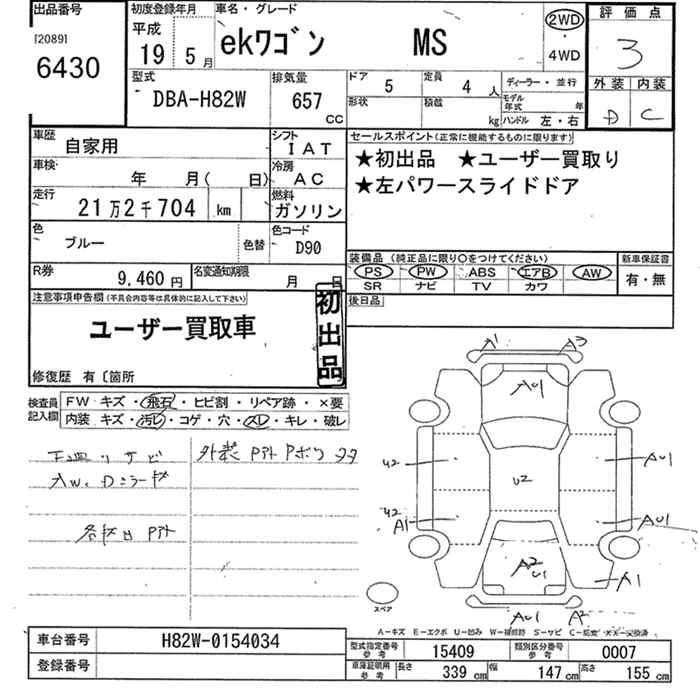 出品番号
[2089]
6430
初度登録年月
平成
19 5月
車名・グレード
ekワゴン MS
2WD
・
4WD
評価点
3
外装 内装
D C
型式
DBA-H82W
排気量
657 CC
ドア 5
定員 4人
形状
積載 kg
ディーラー・並行
モデル年式 年
ハンドル 左・右
車歴
自家用
シフト
IAT
車検
年 月( 日)
冷房
AC
走行
21万2千704 km
燃料
ガソリン
色
ブルー
色替
色コード
D90
R券
9,460円
名変通知期限
月 日
セールスポイント(正常に機能するものに限ります)
★初出品 ★ユーザー買取り
★左パワースライドドア
装備品 (純正品に限り○をつけてください)
PS PW ABS エアB AW
SR ナビ TV カワ
新車保証書
有・無
後日品
注意事項申告欄(不具合内容等は具体的に記入して下さい)
ユーザー買取車
初出品
修復歴 有〔箇所
検査員記入欄
FW キズ・飛石・ヒビ割・リペア跡・×要
内装 キズ・汚レ・コゲ・穴・スレ・キレ・破レ
下廻りサビ
AW、Dミラーキズ
外装
A1 A3
AU1
U2
AU1
U2
U2
A1
AU1
A2
U1
A1
AU1 A2
スペア
A-キズ E-エクボ U-凹み W-補修跡 S-サビ C-腐食 X・XX-交換済
車台番号
H82W-0154034
登録番号
型式指定番号 参考
15409
類別区分番号 参考
0007
車庫証明用 参考
長さ 339cm
幅 147cm
高さ 155cm